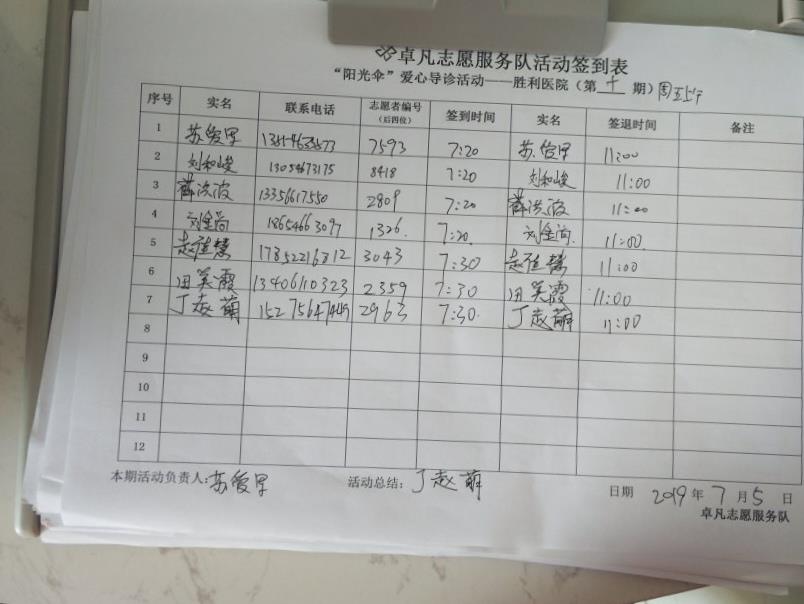 卓凡志愿服务队活动签到表
“阳光伞”爱心导诊活动——胜利医院（第 十 期）周五上午
序号 实名 联系电话 志愿者编号（后四位） 签到时间 实名 签退时间 备注
1 苏俊早 7593 7:20 苏俊早 11:00
2 刘和峻 13054673175 8418 7:20 刘和峻 11:00
3 薛洪波 13356617550 2809 7:20 薛洪波 11:00
4 刘金尚 18654663097 1326 7:20 刘金尚 11:00
5 赵佳慧 17852216812 3043 7:30 赵佳慧 11:00
6 田美霞 13406110323 2359 7:30 田美霞 11:00
7 丁赵萌 2963 7:30 丁赵萌 11:00
8
9
10
11
12
本期活动负责人: 苏俊早 活动总结: 丁赵萌 日期 2019 年 7 月 5 日
卓凡志愿服务队